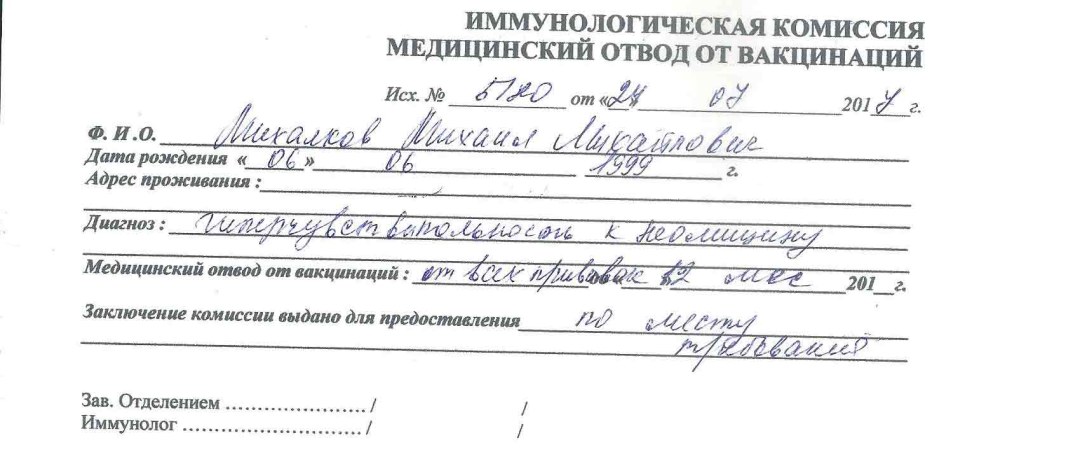 ИММУНОЛОГИЧЕСКАЯ КОМИССИЯ
МЕДИЦИНСКИЙ ОТВОД ОТ ВАКЦИНАЦИЙ
Исх. № 5120 от «27» 07 2017 г.
Ф. И .О. Михалков Михаил Михайлович
Дата рождения « 06 » 06 1999 г.
Адрес проживания :
Диагноз : гиперчувствительность к неомицину
Медицинский отвод от вакцинаций : от всех прививок 12 мес 201__г.
Заключение комиссии выдано для предоставления по месту
требований
Зав. Отделением ...................... / /
Иммунолог ............................ / /